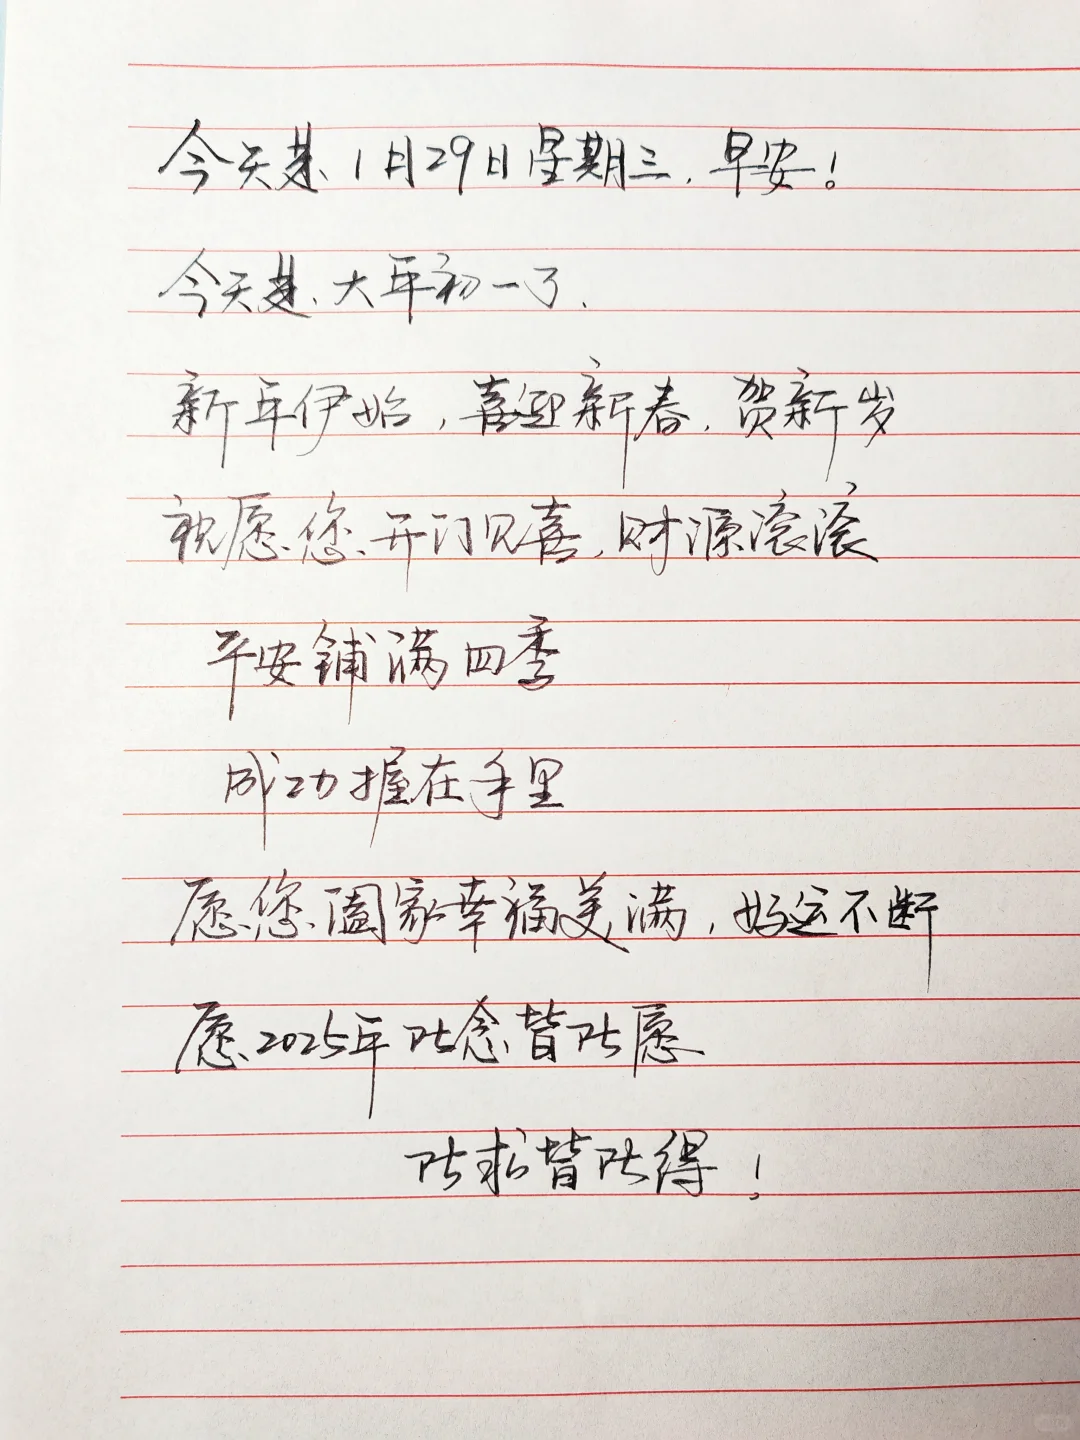 今天是1月29日星期三,早安!
今天是大年初一了.
新年伊始,喜迎新春,贺新岁
祝愿您开门见喜,财源滚滚
平安铺满四季
成功握在手里
愿您阖家幸福美满,好运不断
愿2025年所念皆所愿
所求皆所得!